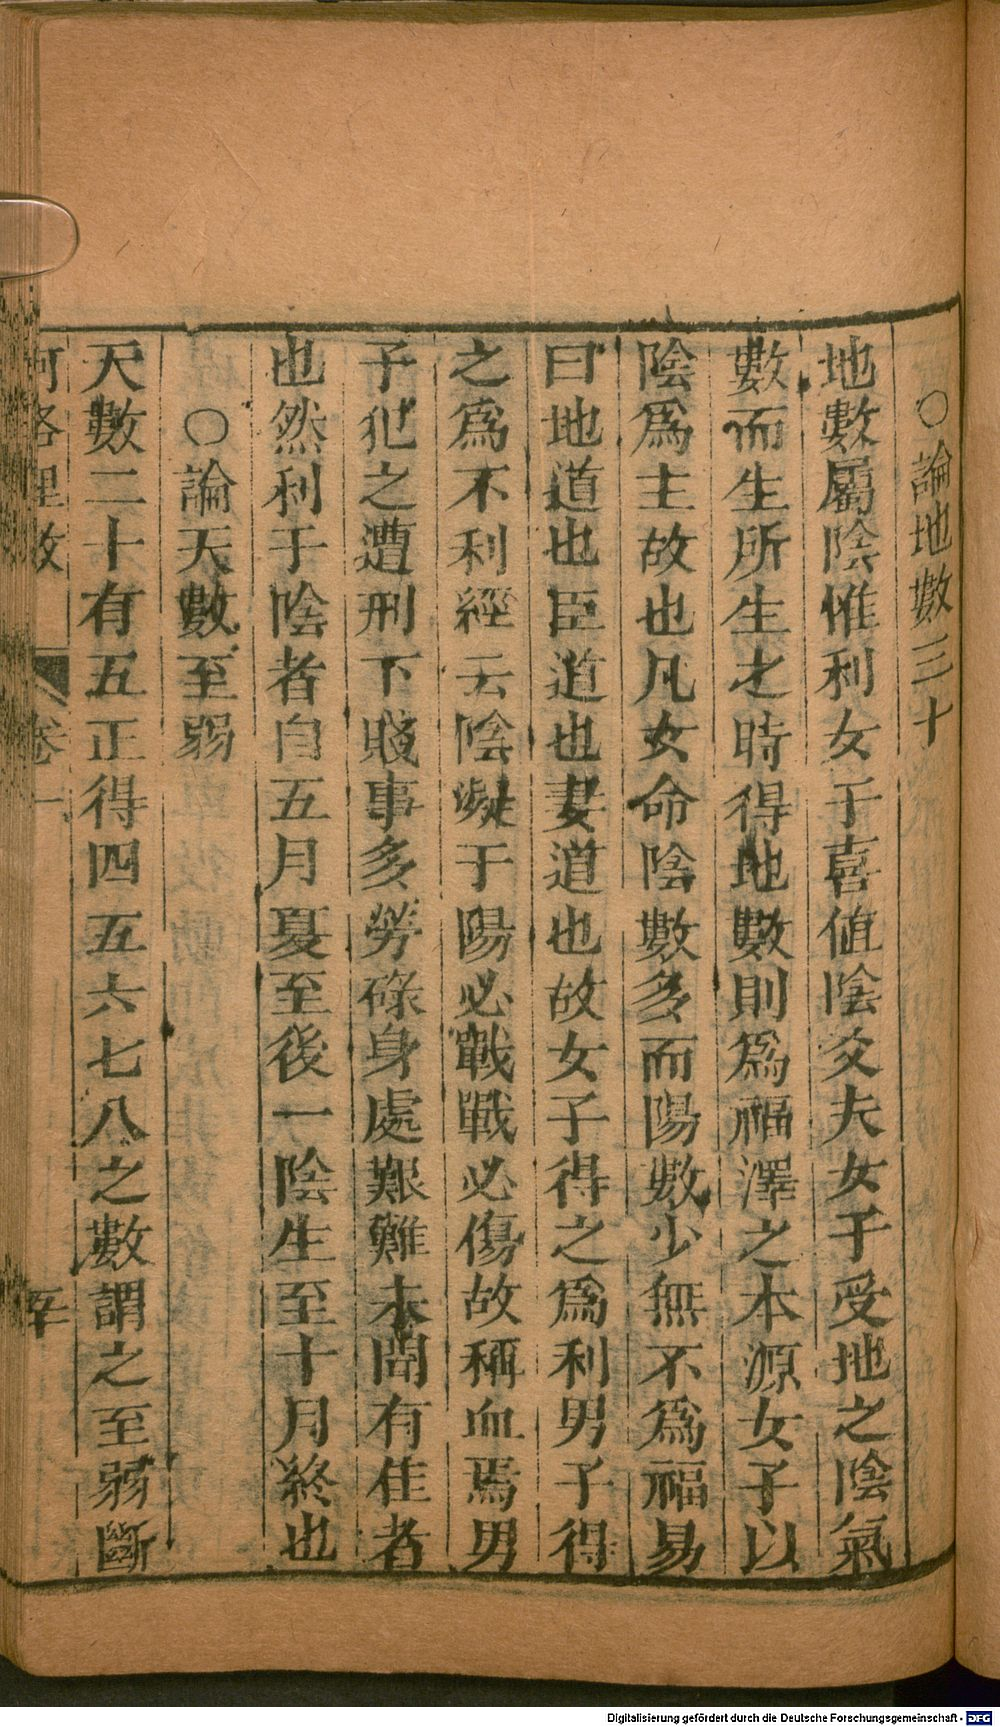 ○論地數三十
地數屬陰惟利女子喜值陰爻夫女子受地之陰氣
數而生所生之時得地數則爲福澤之本源女子以
陰爲主故也凡女命陰數多而陽數少無不爲福易
曰地道也臣道也妻道也故女子得之爲利男子得
之爲不利經云陰凝于陽必戰戰必傷故稱血焉男
子犯之遭刑下賤事多勞碌身處艱難未聞有佳者
也然利于陰者自五月夏至後一陰生至十月終也
○論天數至弱
天數二十有五正得四五六七八之數謂之至弱斷
河洛理數 卷一
Digitalisierung gefördert durch die Deutsche Forschungsgemeinschaft - DFG